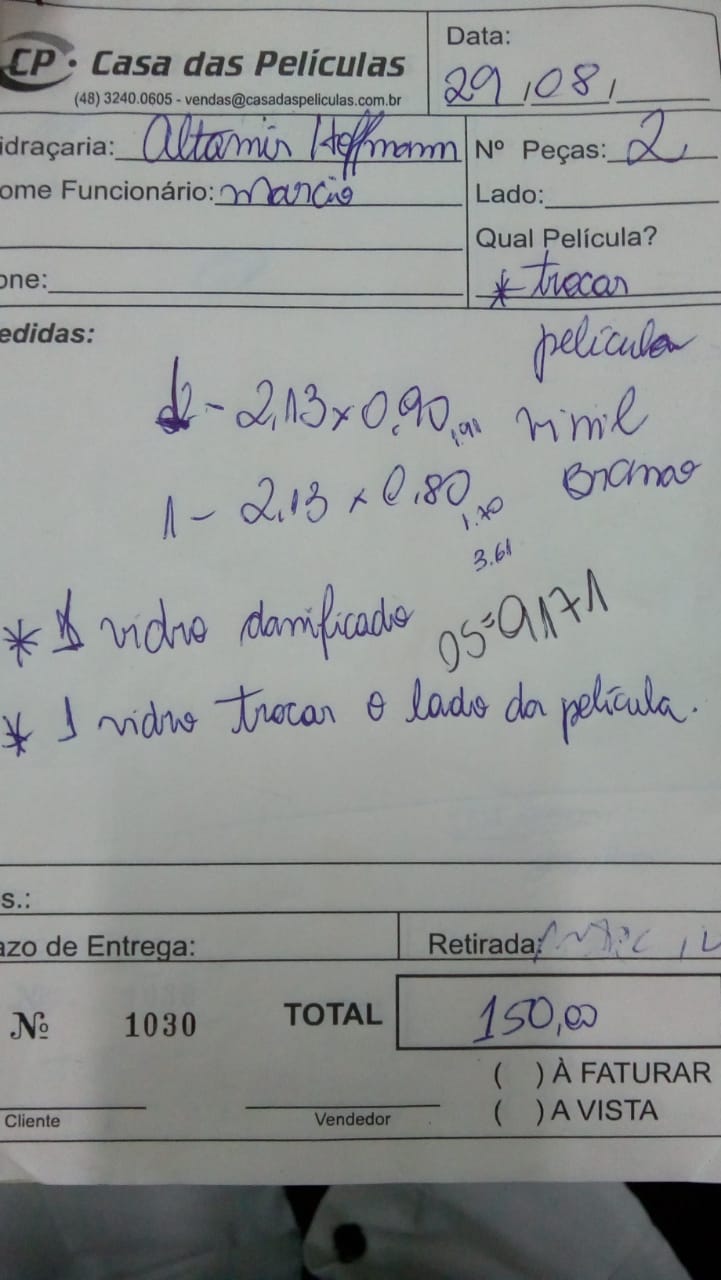 CP · Casa das Películas
(48) 3240.0605 - vendas@casadaspeliculas.com.br
Data:
29 / 08 /
idraçaria: Altamir Hoffmann
Nº Peças: 2
ome Funcionário: Marcio
Lado:
Qual Película?
one:
* trocar
película
vinil
Branco
edidas:
- 2,13 x 0,90 1,91
1 - 2,13 x 0,80 1.70
3.61
* 1 vidro danificado
OS=9171
* 1 vidro trocar o lado da película.
s.:
azo de Entrega:
Retirada:
Nº 1030
TOTAL 150,00
( ) À FATURAR
( ) A VISTA
Cliente
Vendedor